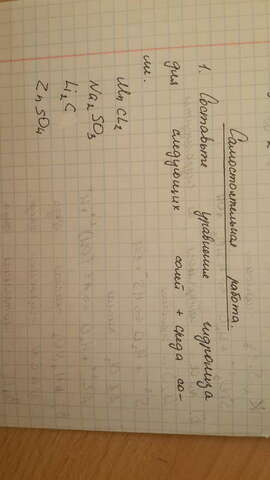 Самостоятельная работа.
1. Составьте уравнение гидролиза
для следующих солей + среда со-
ли.
MnCl₂
Na₂SO₃
Li₂C
ZnSO₄